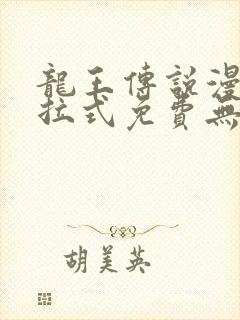 龍王傳說漫
拉式免費無
胡美英